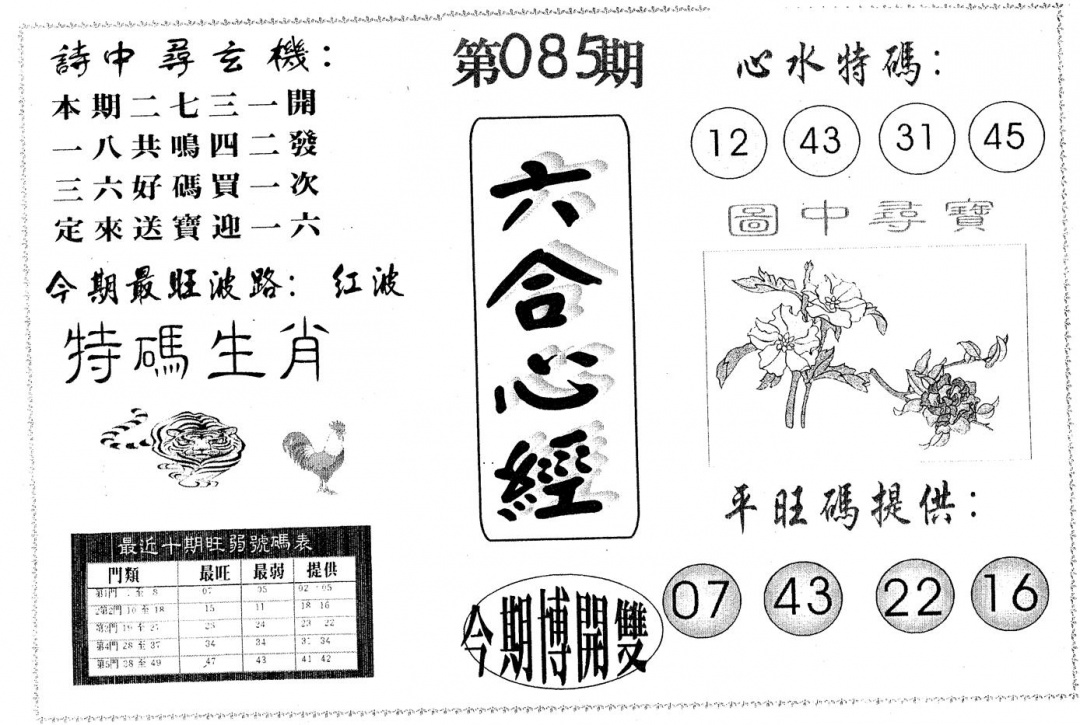 詩中尋玄機：
本期二七三一開
一八共鳴四二發
三六好碼買一次
定來送寶迎一六
今期最旺波路： 红波
特碼生肖
最近十期旺弱號碼表
門類 最旺 最弱 提供
第1門 至 8 05 02 05
第2門 10 至 18 15 11 18 16
第3門 19 至 24 23 22
第4門 28 至 37 34 34 34
第5門 38 至 49 47 43 41 42
第085期
六合心經
今期博開雙
心水特碼：
12 43 31 45
圖中尋寶
平旺碼提供：
07 43 22 16